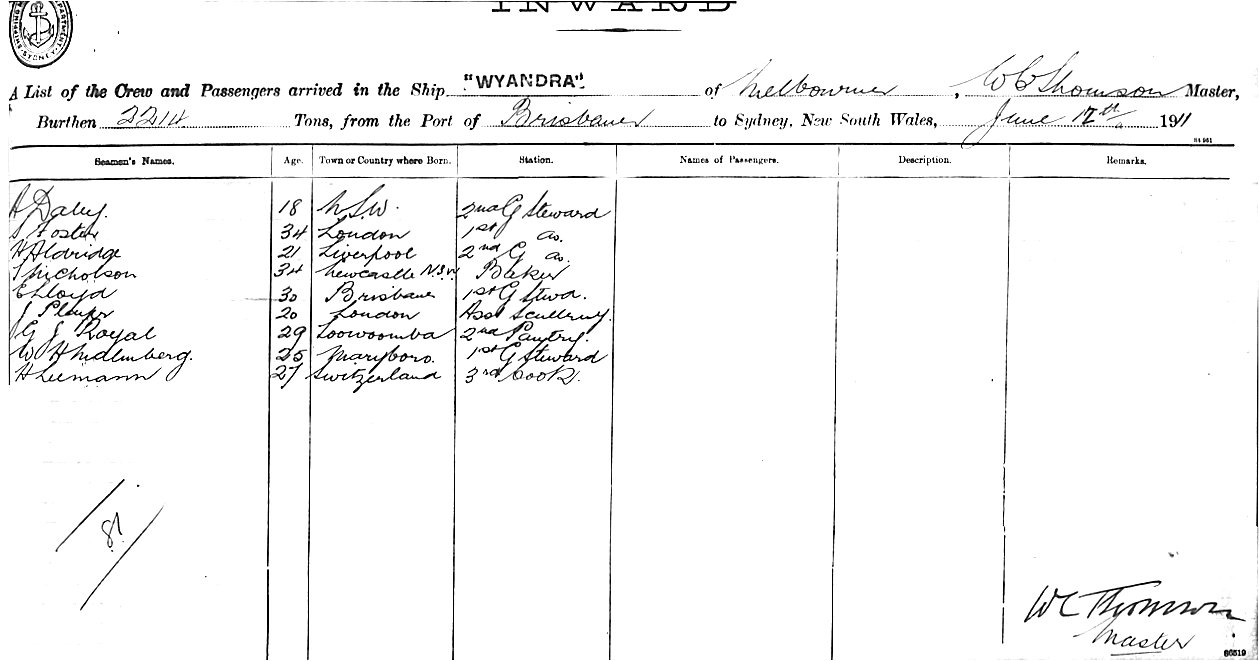 INWARD
SYDNEY
A List of the Crew and Passengers arrived in the Ship "WYANDRA" of Melbourne, W C Thomson Master,
Burthen 2214 Tons, from the Port of Brisbane to Sydney, New South Wales, June 12th 1911
Seamen's Names. Age. Town or Country where Born. Station. Names of Passengers. Description. Remarks.
A Daley. 18 N.S.W. 2nd G Steward
S Foster 34 London 1st do.
H Aldridge 21 Liverpool 2nd G do.
Nicholson 34 Newcastle N.S.W Baker
E Lloyd 30 Brisbane 1st G Stwd.
J 20 London Asst Scullery.
G J Royal 29 Toowoomba 2nd Pantry.
W H Malmberg. 25 Maryboro. 1st G Steward
H Leemann 27 Switzerland 3rd Cook.
81
W C Thomson
Master